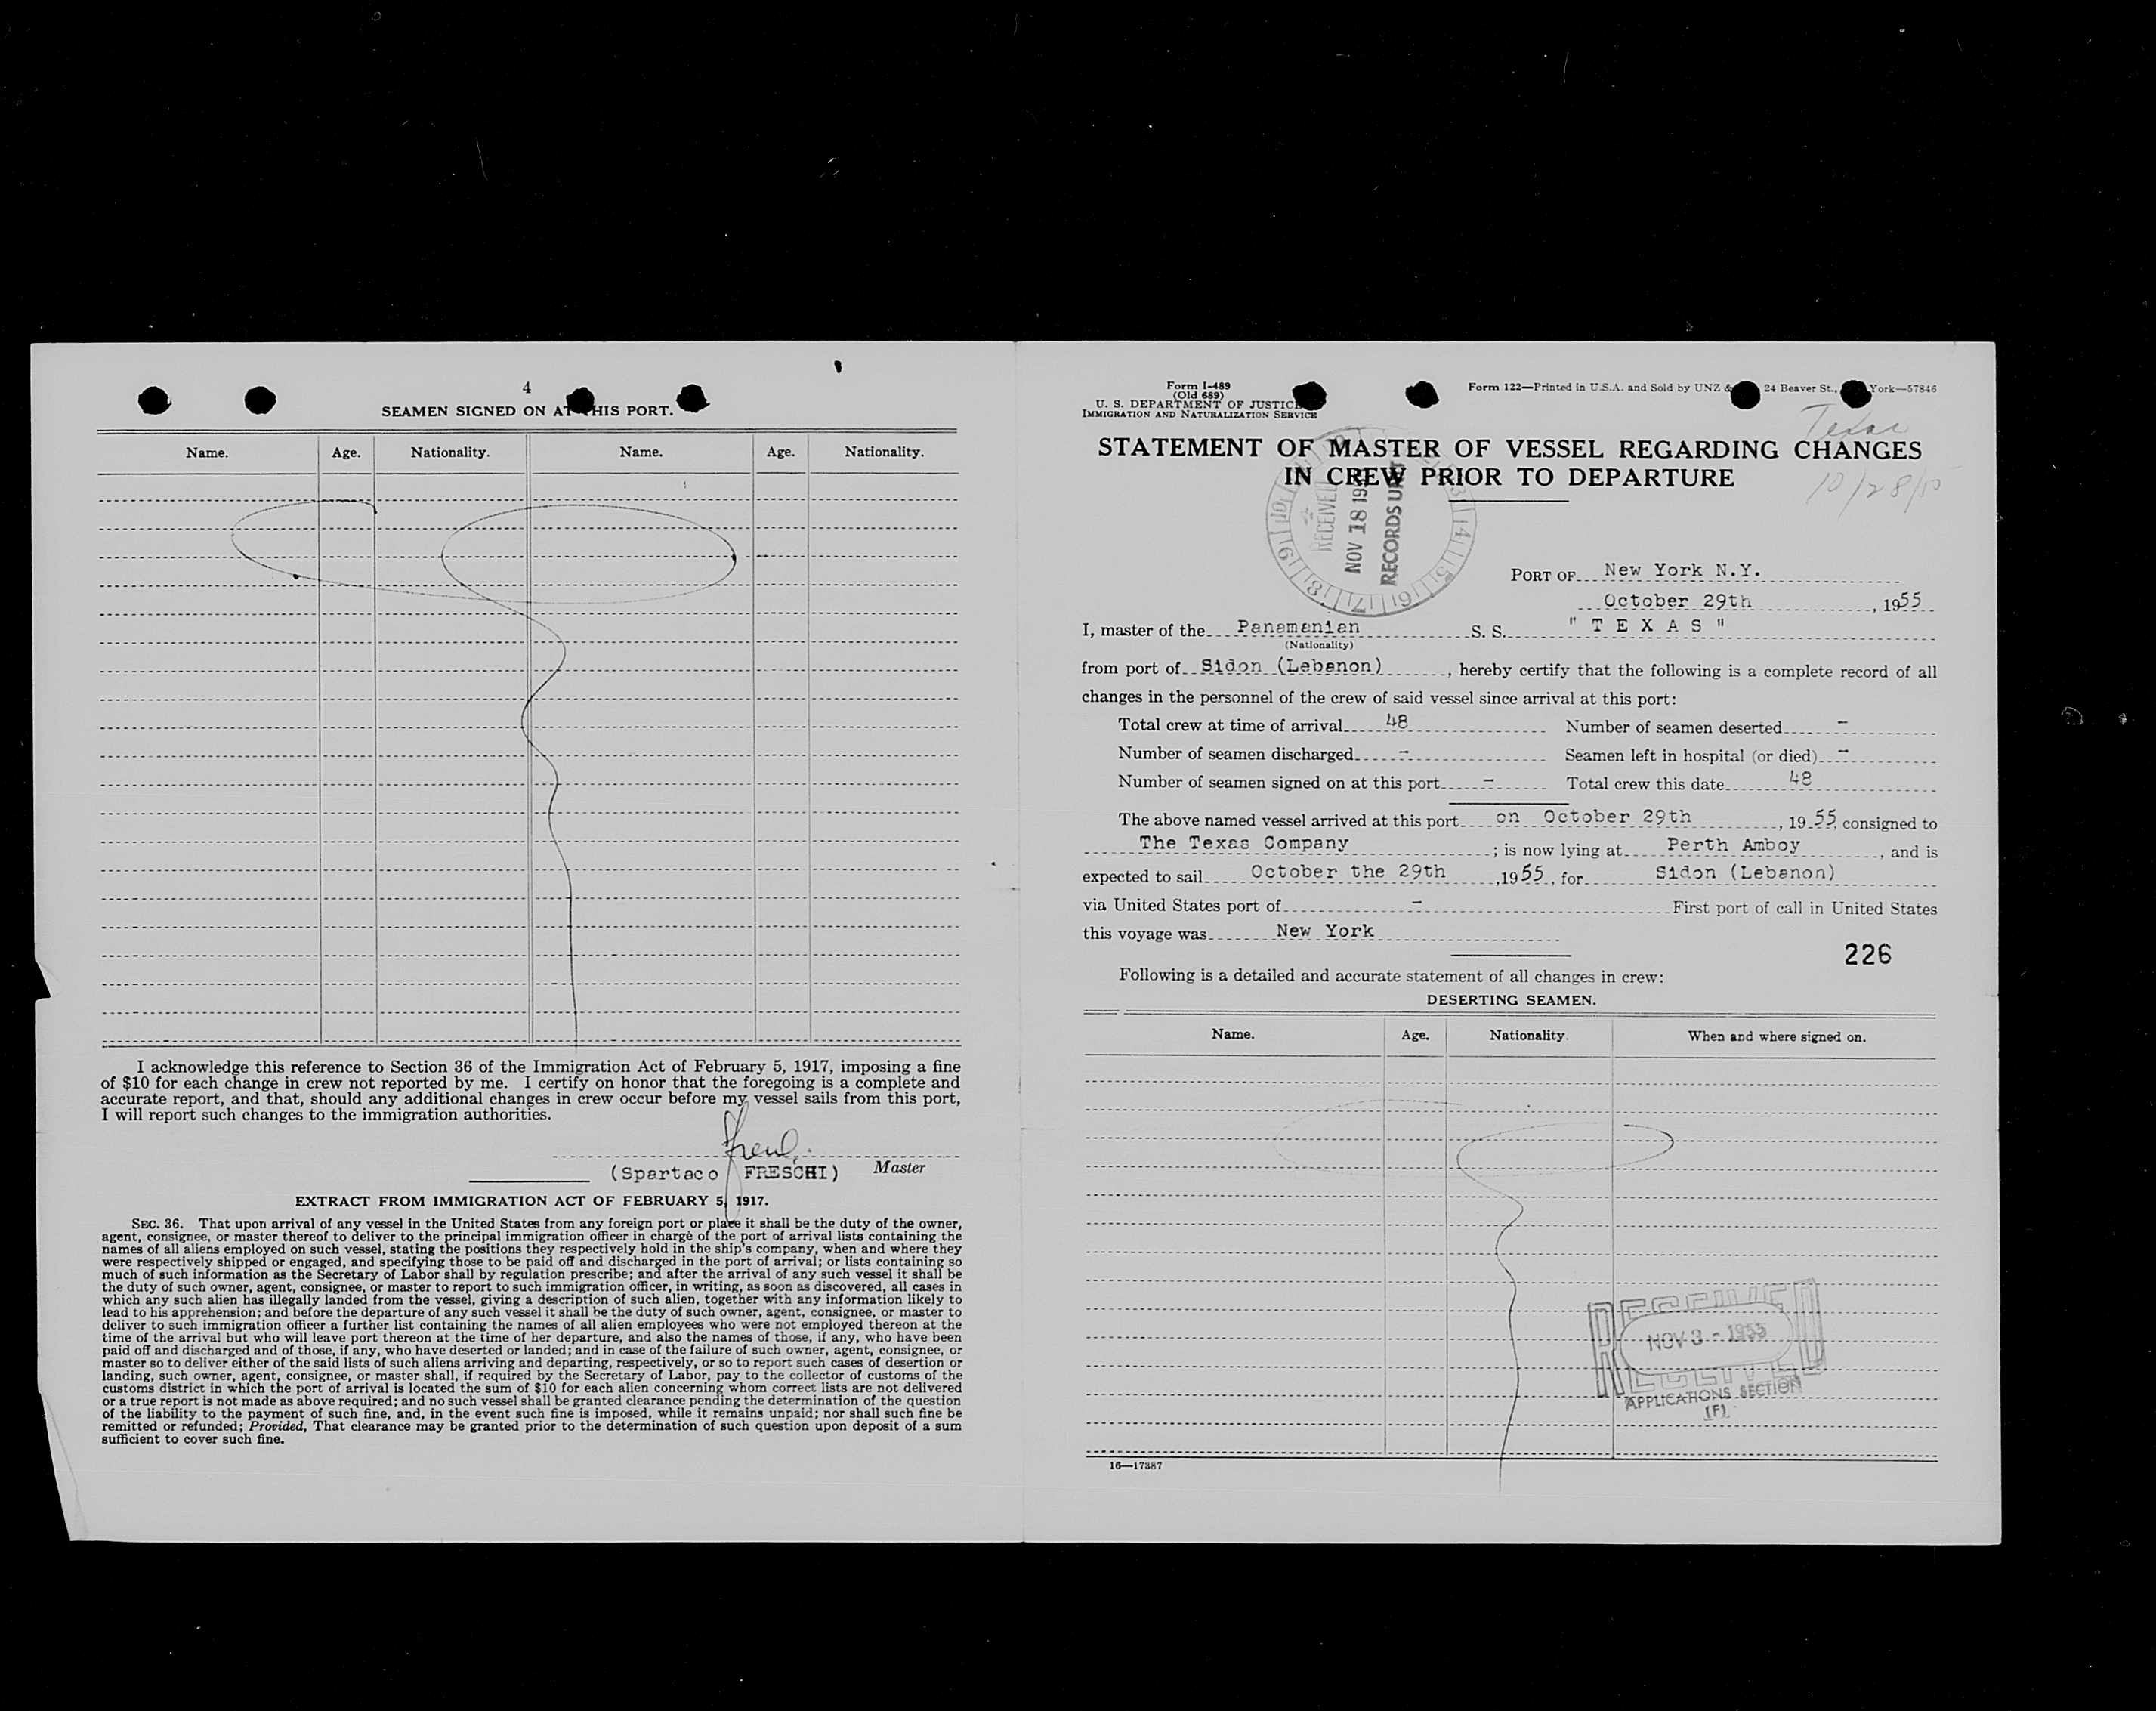 4
SEAMEN SIGNED ON AT THIS PORT.
Name. Age. Nationality. Name. Age. Nationality.
I acknowledge this reference to Section 36 of the Immigration Act of February 5, 1917, imposing a fine
of $10 for each change in crew not reported by me. I certify on honor that the foregoing is a complete and
accurate report, and that, should any additional changes in crew occur before my vessel sails from this port,
I will report such changes to the immigration authorities.
(Spartaco FRESCHI) Master
EXTRACT FROM IMMIGRATION ACT OF FEBRUARY 5, 1917.
SEC. 36. That upon arrival of any vessel in the United States from any foreign port or place it shall be the duty of the owner,
agent, consignee, or master thereof to deliver to the principal immigration officer in charge of the port of arrival lists containing the
names of all aliens employed on such vessel, stating the positions they respectively hold in the ship's company, when and where they
were respectively shipped or engaged, and specifying those to be paid off and discharged in the port of arrival; or lists containing so
much of such information as the Secretary of Labor shall by regulation prescribe; and after the arrival of any such vessel it shall be
the duty of such owner, agent, consignee, or master to report to such immigration officer, in writing, as soon as discovered, all cases in
which any such alien has illegally landed from the vessel, giving a description of such alien, together with any information likely to
lead to his apprehension; and before the departure of any such vessel it shall be the duty of such owner, agent, consignee, or master to
deliver to such immigration officer a further list containing the names of all alien employees who were not employed thereon at the
time of the arrival but who will leave port thereon at the time of her departure, and also the names of those, if any, who have been
paid off and discharged and of those, if any, who have deserted or landed; and in case of the failure of such owner, agent, consignee, or
master so to deliver either of the said lists of such aliens arriving and departing, respectively, or so to report such cases of desertion or
landing, such owner, agent, consignee, or master shall, if required by the Secretary of Labor, pay to the collector of customs of the
customs district in which the port of arrival is located the sum of $10 for each alien concerning whom correct lists are not delivered
or a true report is not made as above required; and no such vessel shall be granted clearance pending the determination of the question
of the liability to the payment of such fine, and, in the event such fine is imposed, while it remains unpaid; nor shall such fine be
remitted or refunded; Provided, That clearance may be granted prior to the determination of such question upon deposit of a sum
sufficient to cover such fine.
Form I-489
(Old 689)
U. S. DEPARTMENT OF JUSTICE
IMMIGRATION AND NATURALIZATION SERVICE
Form 122—Printed in U.S.A. and Sold by UNZ & 24 Beaver St., York—57846
Texas
10/28/55
STATEMENT OF MASTER OF VESSEL REGARDING CHANGES
IN CREW PRIOR TO DEPARTURE
RECEIVED
NOV 18 195
RECORDS UNIT
PORT OF New York N.Y.
October 29th, 1955
I, master of the Panamanian S. S. " T E X A S "
(Nationality)
from port of Sidon (Lebanon), hereby certify that the following is a complete record of all
changes in the personnel of the crew of said vessel since arrival at this port:
Total crew at time of arrival 48 Number of seamen deserted -
Number of seamen discharged - Seamen left in hospital (or died) -
Number of seamen signed on at this port - Total crew this date 48
The above named vessel arrived at this port on October 29th, 1955 consigned to
The Texas Company; is now lying at Perth Amboy, and is
expected to sail October the 29th, 1955, for Sidon (Lebanon)
via United States port of - First port of call in United States
this voyage was New York
226
Following is a detailed and accurate statement of all changes in crew:
DESERTING SEAMEN.
Name. Age. Nationality. When and where signed on.
RECEIVED
NOV 3 - 1955
APPLICATIONS SECTION
(F)
16—17387